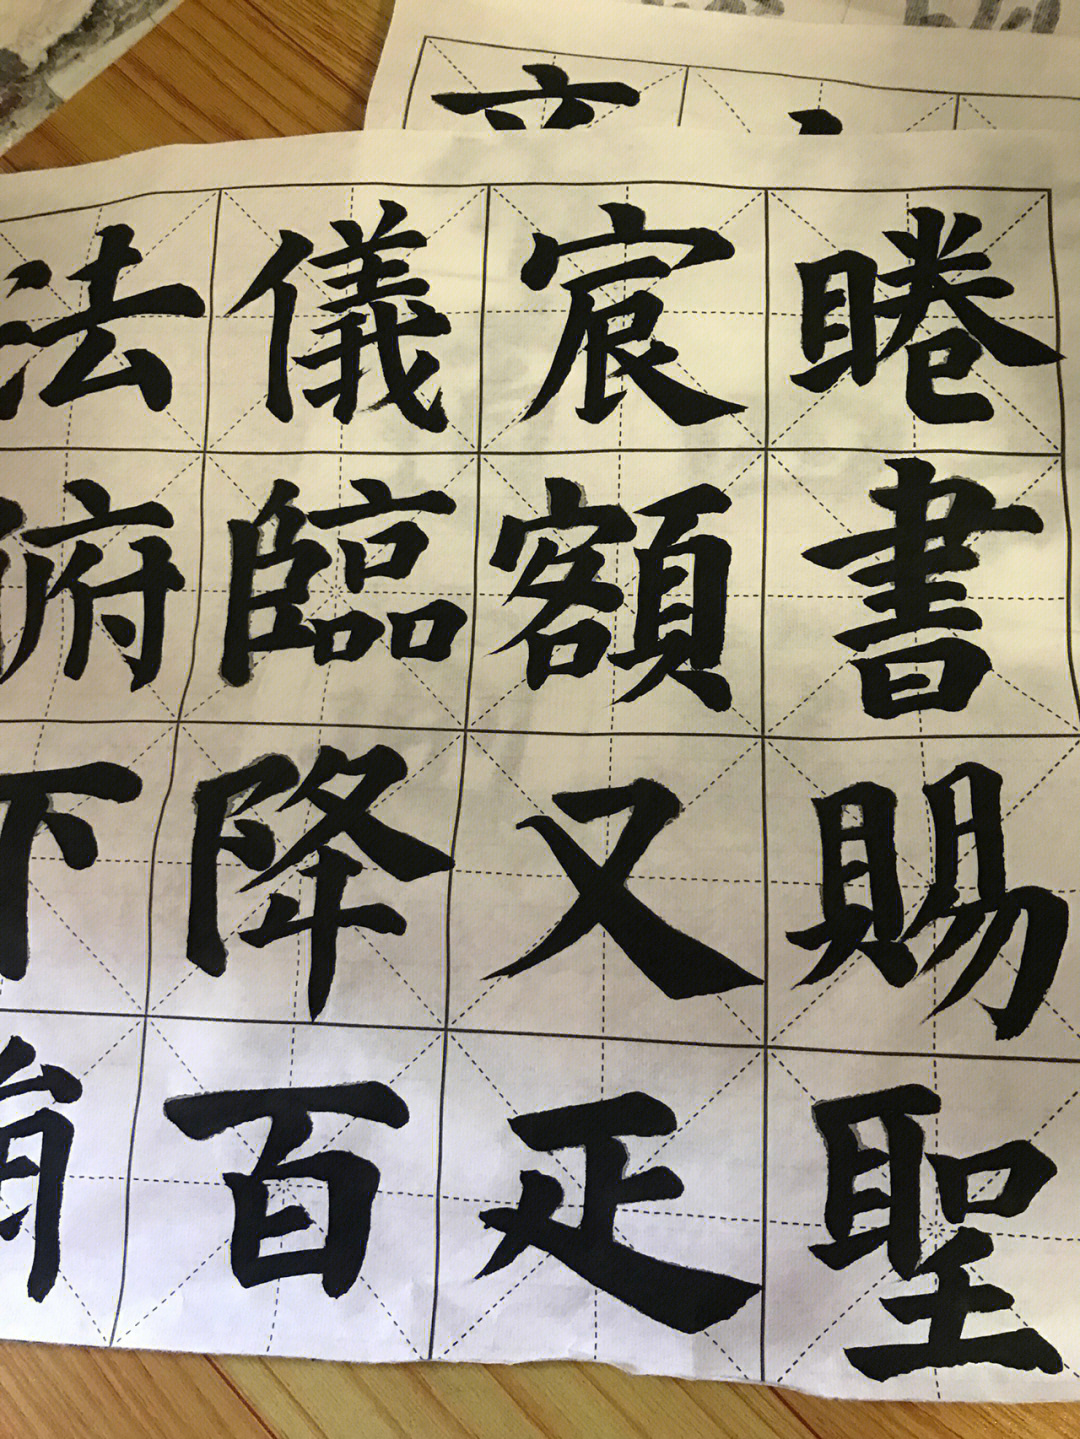 法儀宸睠
俯臨額書
下降又賜
絹百疋聖